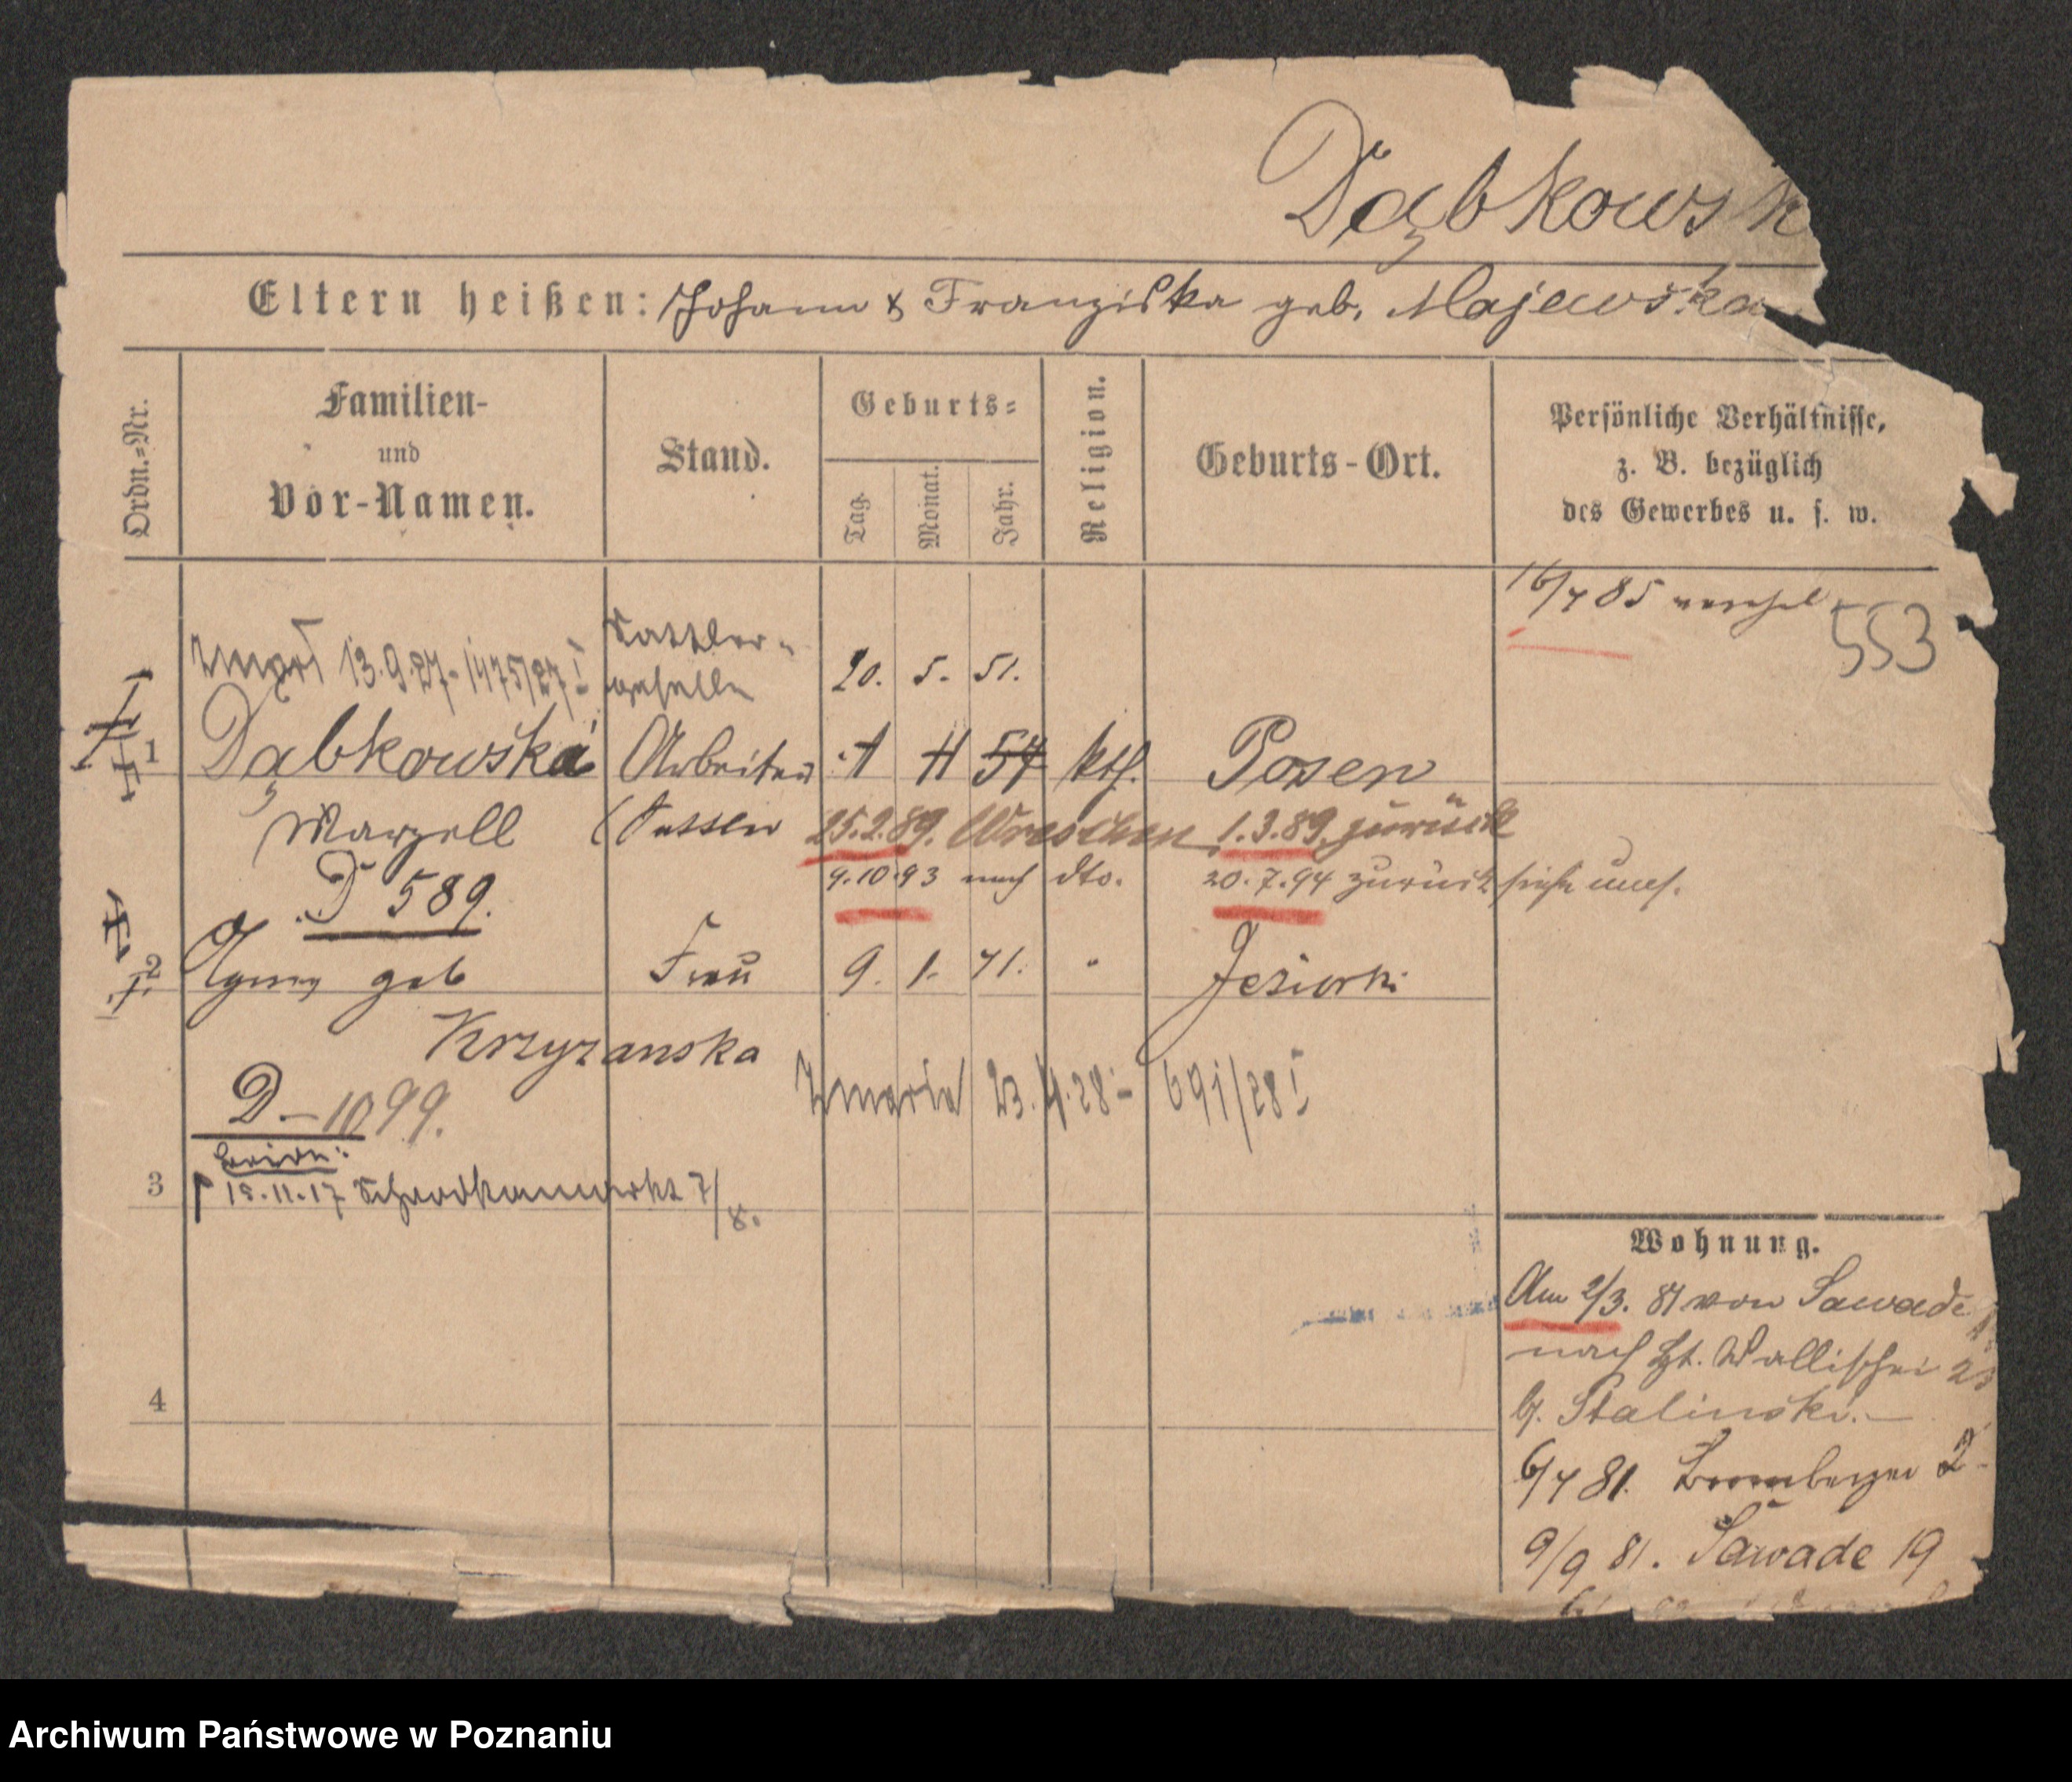 Dąbkowsk
Eltern heißen: Johann & Franziska geb. Majewska
Ordn.=Nr.
Familien-
und
Vor-Namen.
Stand.
Geburts=
Tag.
Monat.
Jahr.
Religion.
Geburts-Ort.
Persönliche Verhältnisse,
z. B. bezüglich
des Gewerbes u. s. w.
16/7 85
553
Sattler-
geselle
zmarł 13.9.27-1475/27 I
20. 5. 51.
1 Dąbkowski Arbeiter 1 11 54 kth. Posen
Marzell (Sattler 25.2.89. Wreschen 1.3.89. zurück
9.10.93 nach dto. 20.7.94 zurück siehe
D 589.
2 geb Frau 9. 1. 71. " Jeziorki
Krzyzanska
zmarła 23.4.28 - 691/28 I
D - 1099.
3 15.11.17 Schrodkamarkt 7/8.
4
Wohnung.
Am 2/3. 81 von Sawade
nach Wallischei
b. Stalinski. -
6/7 81. Bromberger 2
9/9 81. Sawade 19
Archiwum Państwowe w Poznaniu